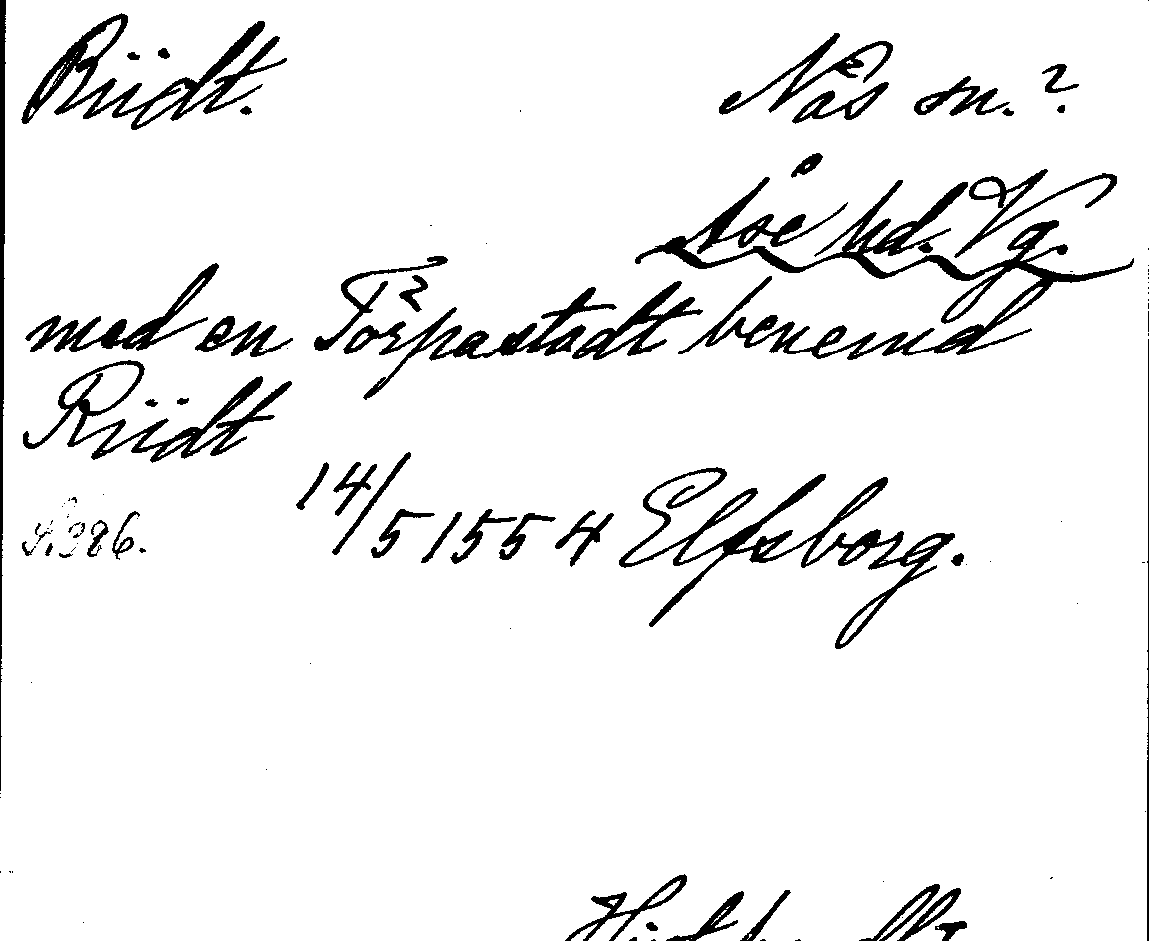 Riidt.
Nås sn.?
Åse hd. Vg.
med en Torpastadt benemd
Riidt
S. 386. 14/5 1554 Elfsborg.